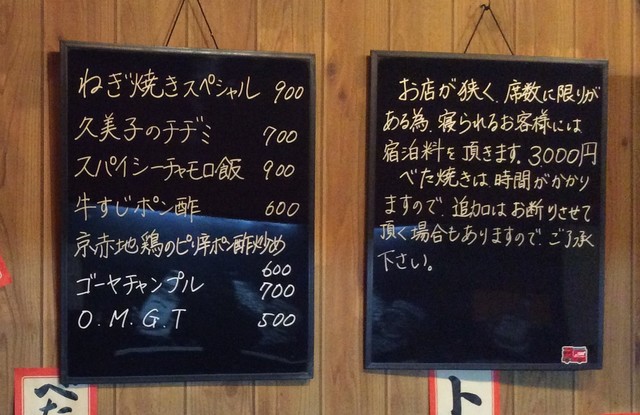 ねぎ焼きスペシャル 900
久美子のチヂミ 700
スパイシーチャモロ飯 900
牛すじポン酢 600
京赤地鶏のピリ辛ポン酢炒め
600
ゴーヤチャンプル 700
O.M.G.T 500
お店が狭く、席数に限りが
ある為、寝られるお客様には
宿泊料を頂きます。3000円
べた焼きは、時間がかかり
ますので、追加はお断りさせて
頂く場合もありますので、ご了承
下さい。
べた
ト